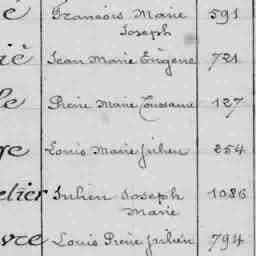 é François Marie 591
Joseph
ié Jean Marie Eugène 721
le Pierre Marie Toussaint 127
ge Louis Marie Julien 254
elier Julien Joseph 1086
Marie
vre Louis Pierre Julien 794